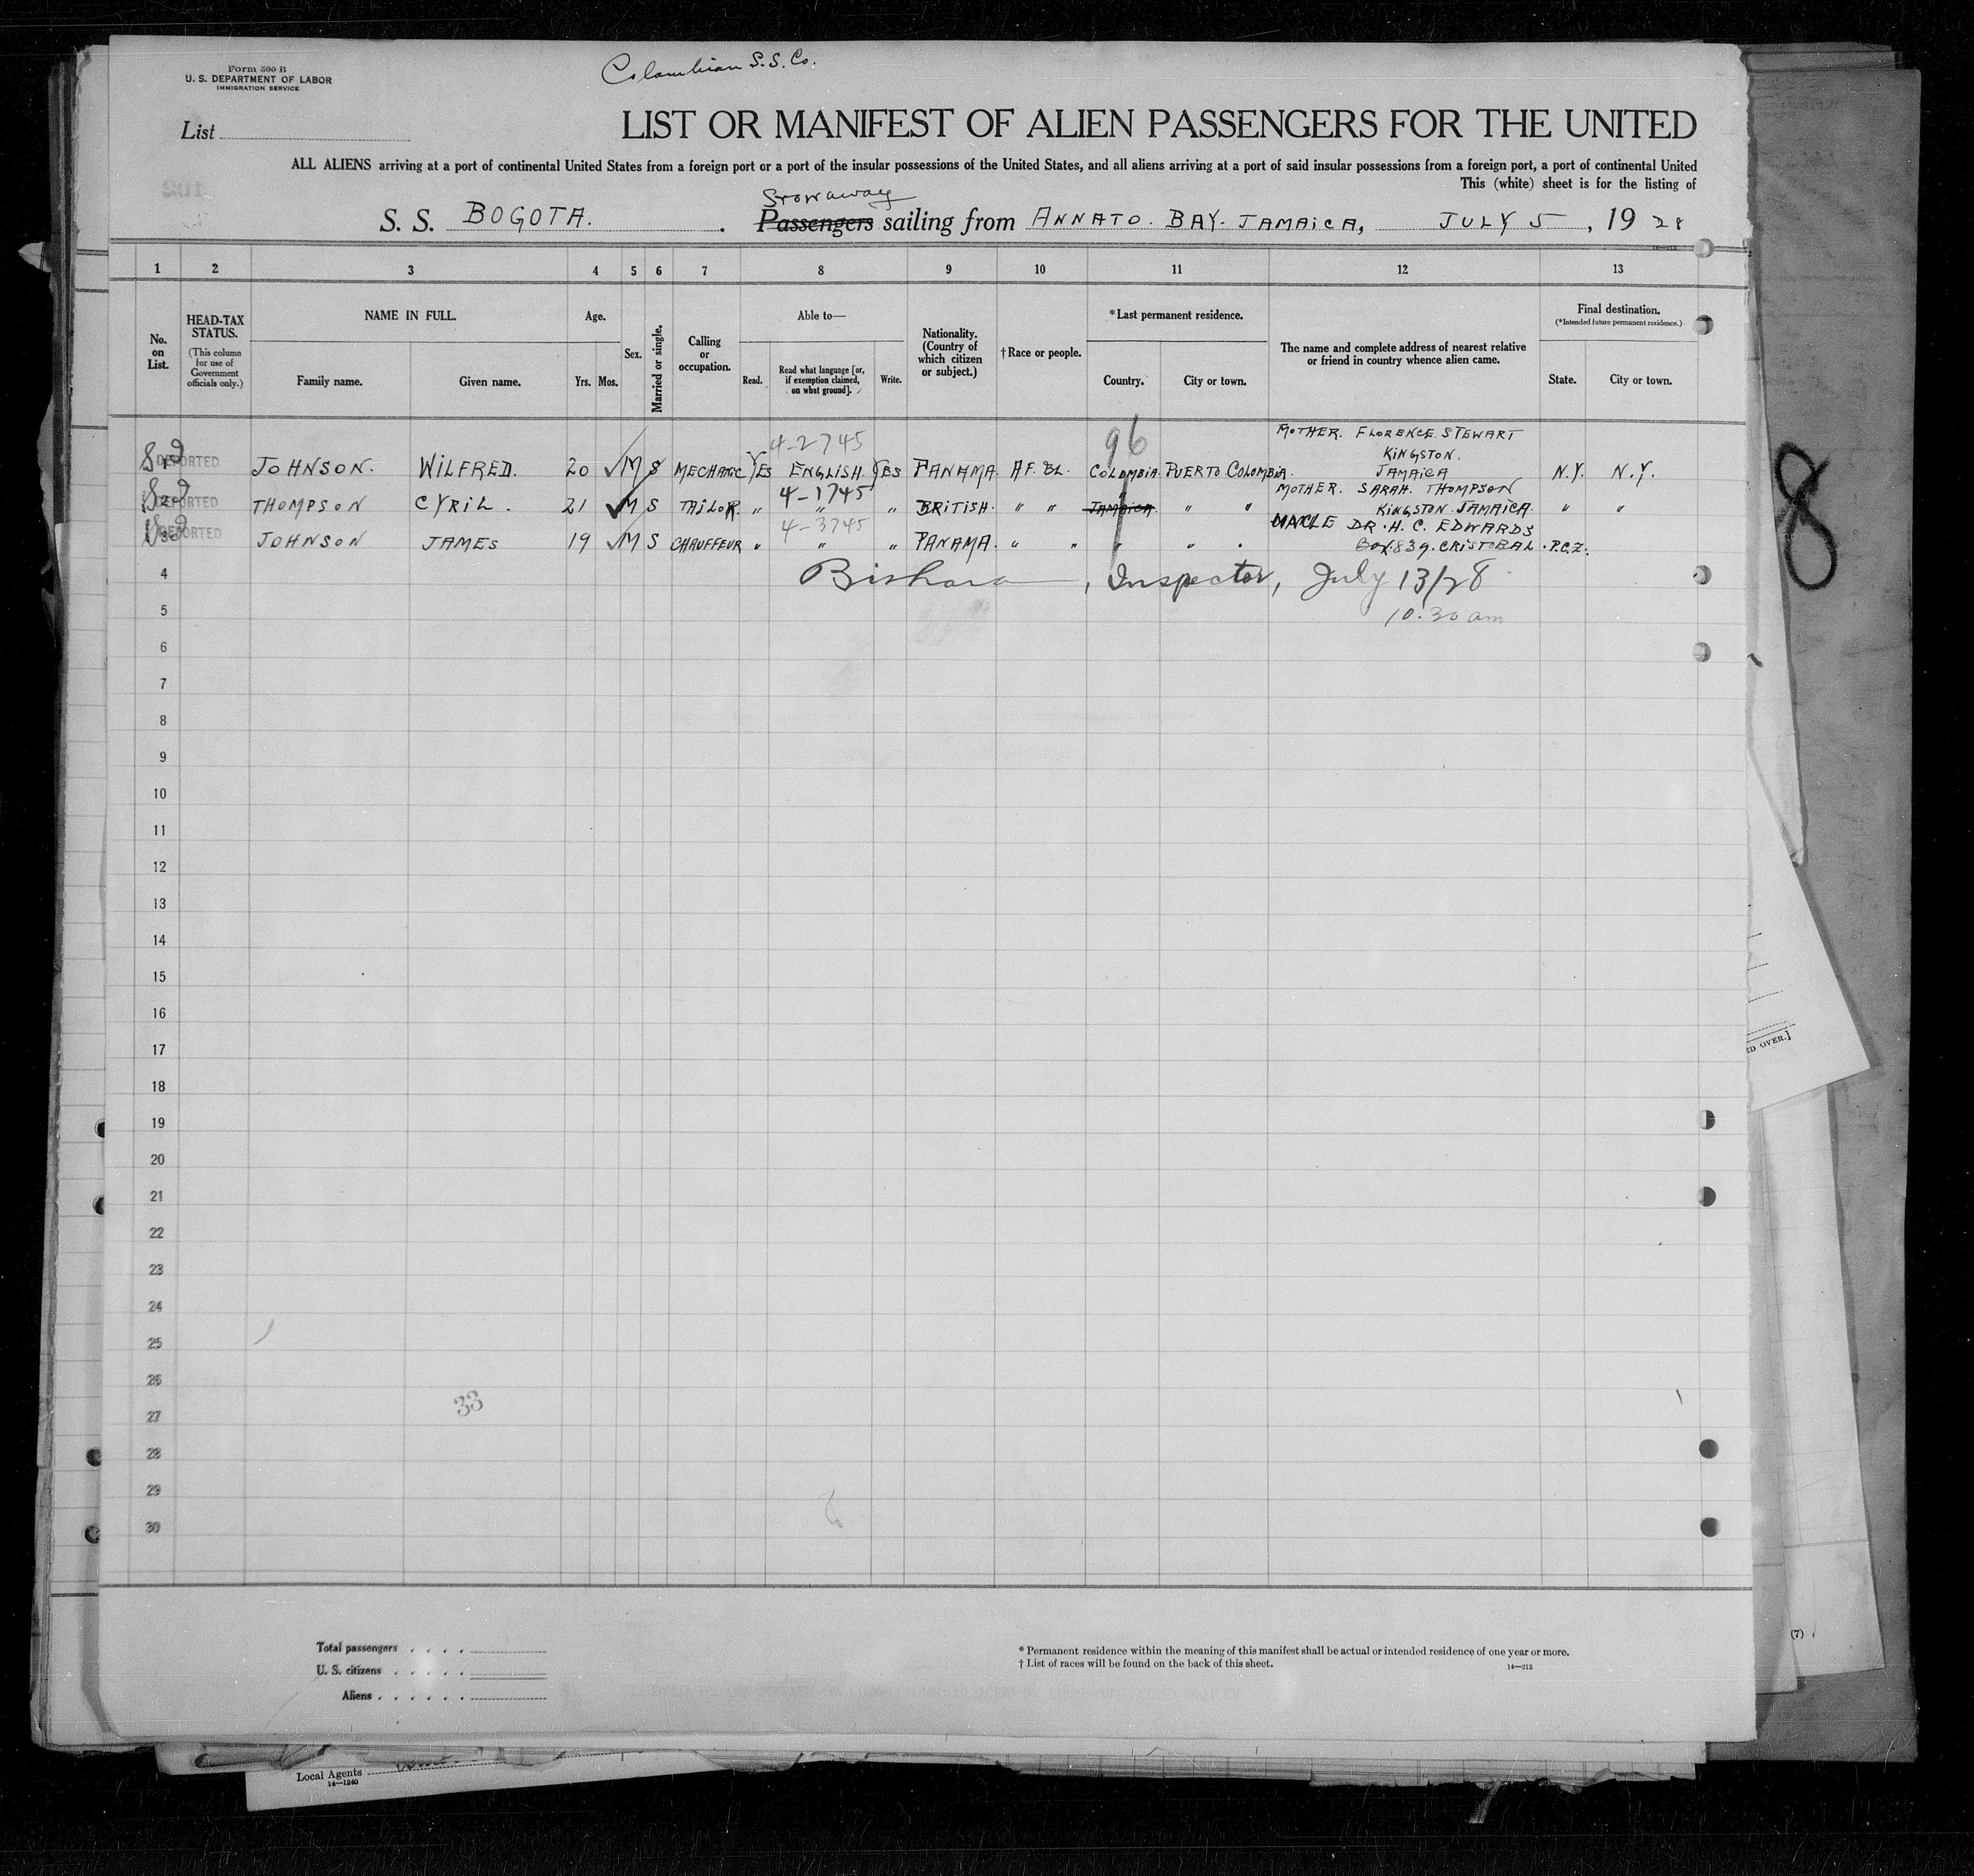 Form 500 B
U. S. DEPARTMENT OF LABOR
IMMIGRATION SERVICE
Colombian S.S. Co.
List
LIST OR MANIFEST OF ALIEN PASSENGERS FOR THE UNITED
ALL ALIENS arriving at a port of continental United States from a foreign port or a port of the insular possessions of the United States, and all aliens arriving at a port of said insular possessions from a foreign port, a port of continental United
This (white) sheet is for the listing of
Stowaway
S. S. BOGOTA. Passengers sailing from ANNATO. BAY. JAMAICA, JULY 5, 1928
14—213
1 2 3 4 5 6 7 8 9 10 11 12 13
No. on List.
HEAD-TAX STATUS.
(This column for use of Government officials only.)
NAME IN FULL.
Family name. Given name.
Age.
Yrs. Mos.
Sex.
Married or single.
Calling or occupation.
Able to—
Read. Read what language [or, if exemption claimed, on what ground]. Write.
Nationality. (Country of which citizen or subject.)
†Race or people.
*Last permanent residence.
Country. City or town.
The name and complete address of nearest relative or friend in country whence alien came.
Final destination.
(*Intended future permanent residence.)
State. City or town.
4-2745 96 MOTHER. FLORENCE. STEWART
KINGSTON.
1 DEPORTED JOHNSON. WILFRED. 20 M S MECHANIC YES ENGLISH. YES PANAMA. AF. BL. COLOMBIA. PUERTO COLOMBIA. JAMAICA N.Y. N.Y.
4-1745 MOTHER. SARAH. THOMPSON
2 DEPORTED THOMPSON CYRIL. 21 M S TAILOR " " " BRITISH. " " JAMAICA. " " KINGSTON. JAMAICA. " "
4-3745 UNCLE DR. H. C. EDWARDS
3 DEPORTED JOHNSON JAMES 19 M S CHAUFFEUR " " " PANAMA. " " " " . BOX. 839. CRISTOBAL. P.C.Z.
4 Inspector, July 13/28
5 10.30 am
6
7
8
9
10
11
12
13
14
15
16
17
18
19
20
21
22
23
24
25
26
27
28
29
30
33
8
Total passengers
U. S. citizens
Aliens
* Permanent residence within the meaning of this manifest shall be actual or intended residence of one year or more.
† List of races will be found on the back of this sheet.
14—213
ED OVER.]
(7)
Local Agents
14—1240